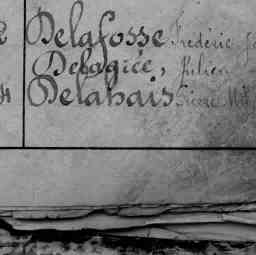 Delafosse Frédéric
Delagrée, Julien
Delahais Pierre